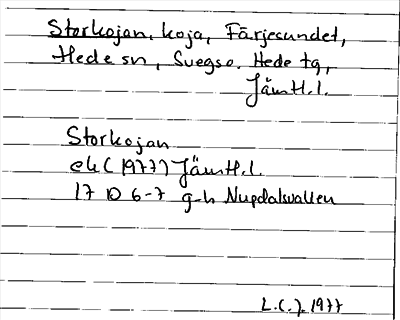 Storkojan, koja, Färjesundet,
Hede sn, Svegs o. Hede tg,
Jämtl. l.
Storkojan
ek (1977) Jämtl. l.
17 D 6-7 g-h Nupdalsvallen
L.C.J. 1977